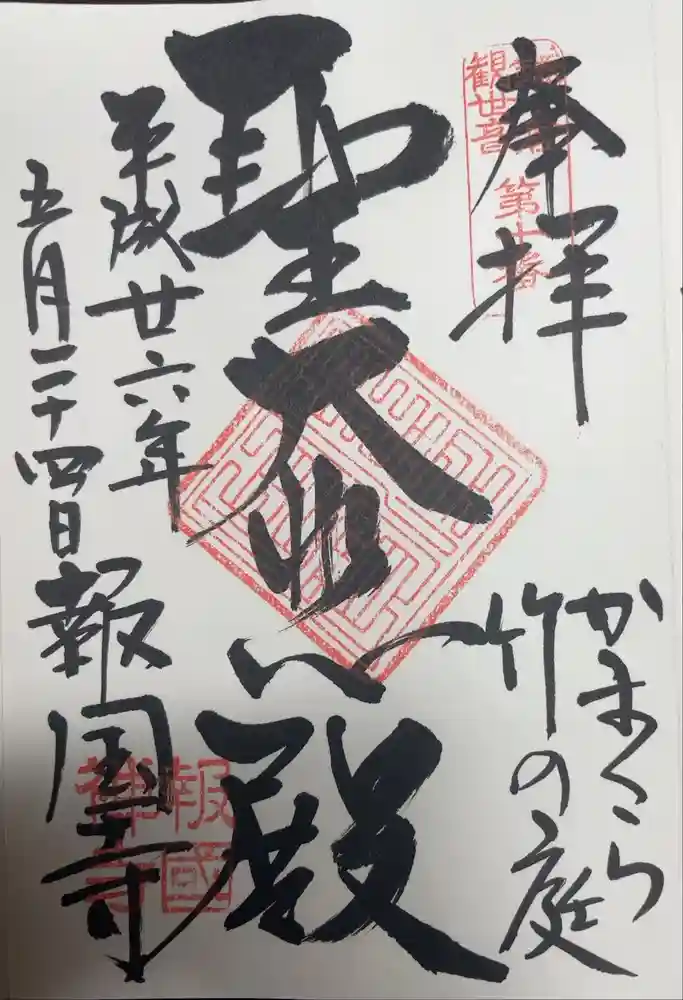 奉拝
観世音 第十番
かまくら
竹の庭
聖大悲殿
平成廿六年
五月二十四日
報国寺
報國
禅寺